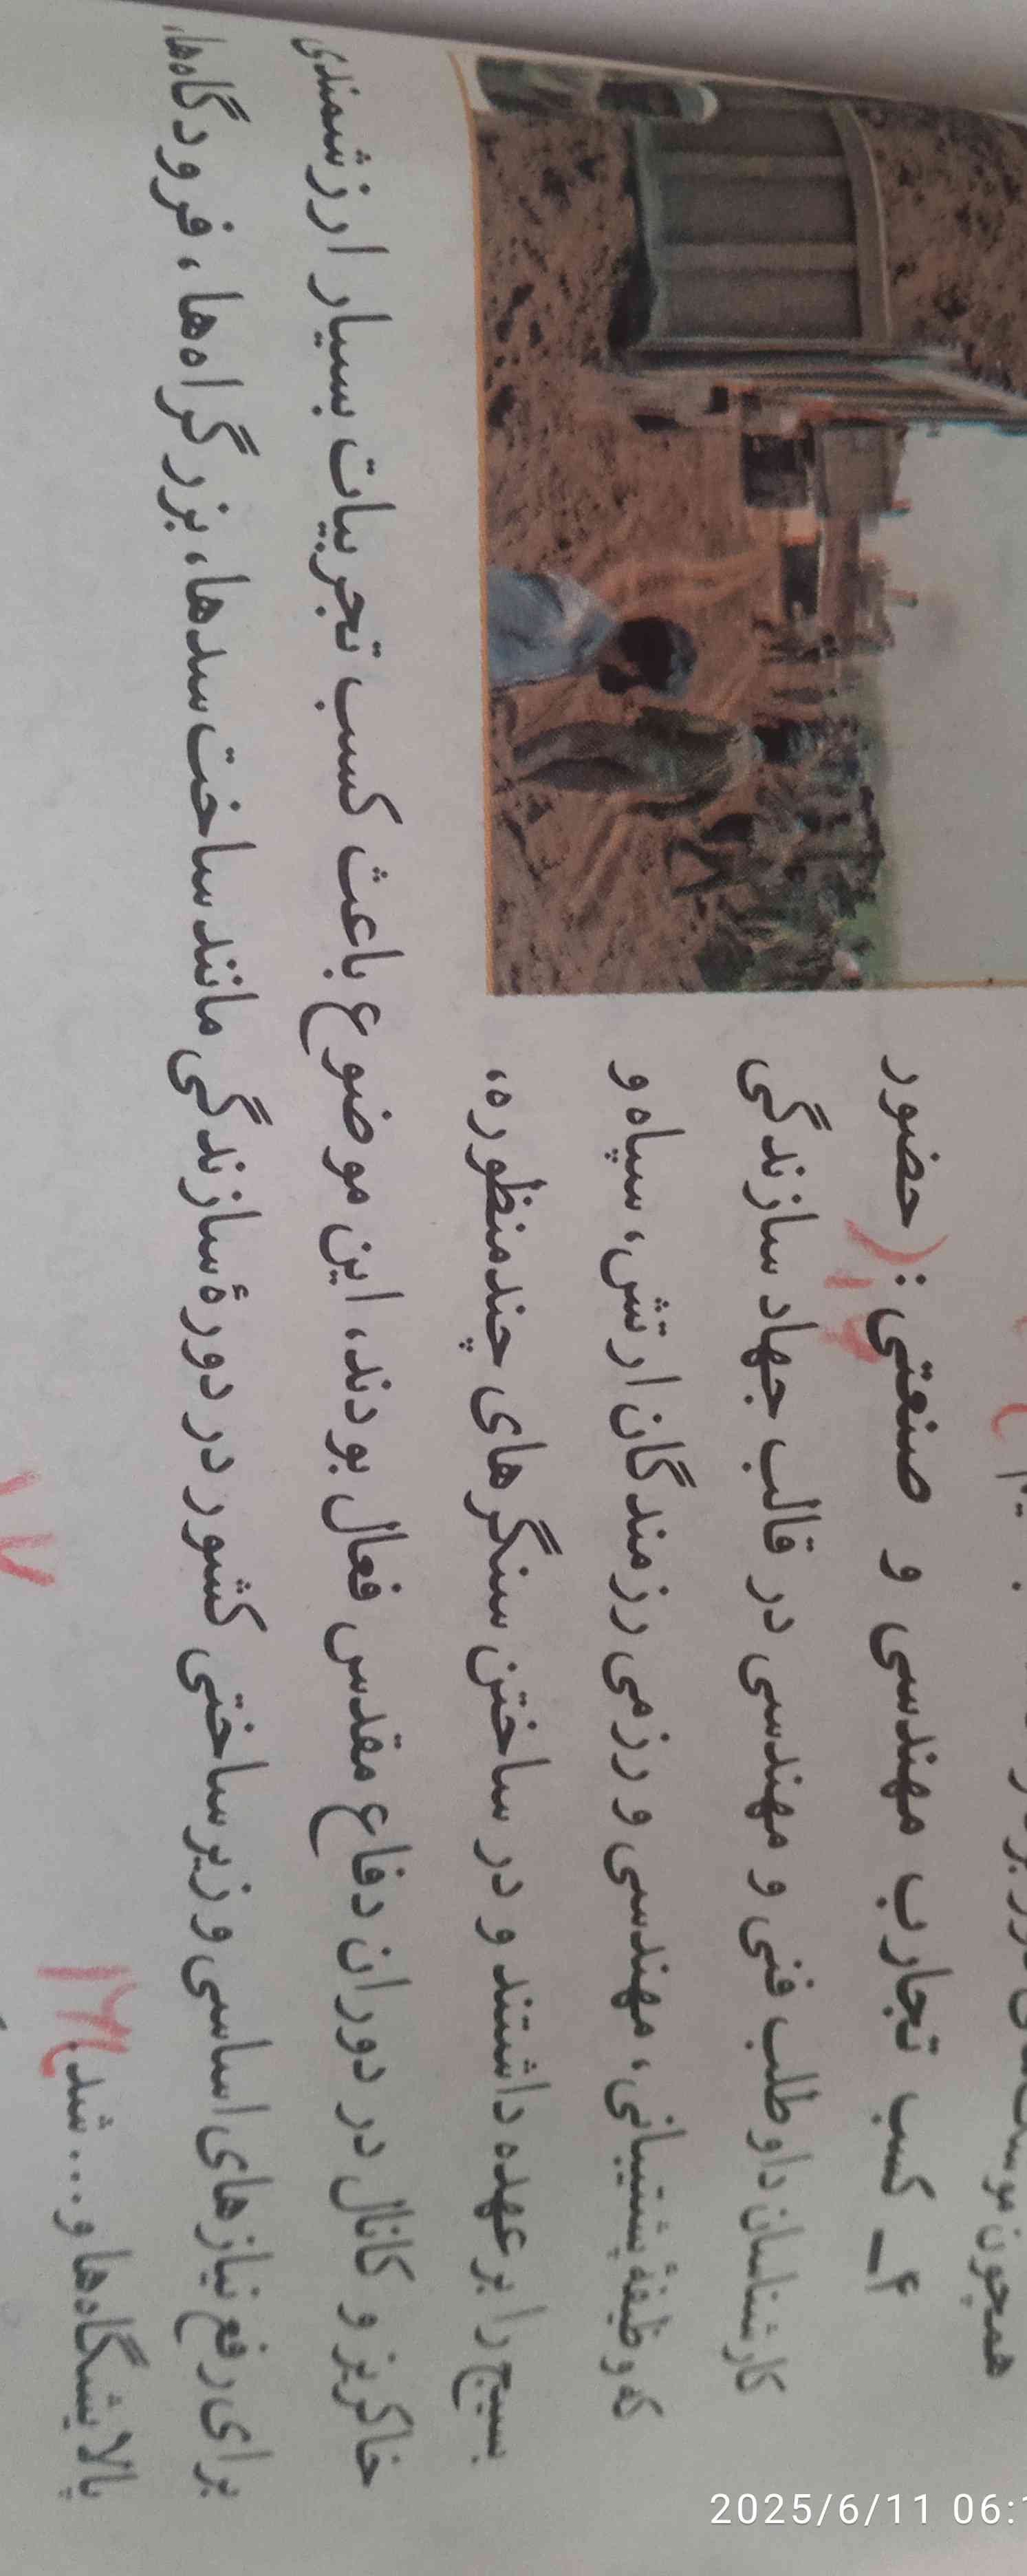 همچون
۴ــ کسب تجارب مهندسی و صنعتی: (حضور
کارشناسان داوطلب فنی و مهندسی در قالب جهاد سازندگی
که وظیفهٔ پشتیبانی، مهندسی و رزمی رزمندگان ارتش، سپاه و
بسیج را برعهده داشتند و در ساختن سنگرهای چندمنظوره،
خاکریز و کانال در دوران دفاع مقدس فعال بودند، این موضوع باعث کسب تجربیات بسیار ارزشمندی
برای رفع نیازهای اساسی و زیرساختی کشور در دورهٔ سازندگی مانند ساخت سدها، بزرگراه‌ها، فرودگاه‌ها،
پالایشگاه‌ها و... شد.
2025/6/11 06:1